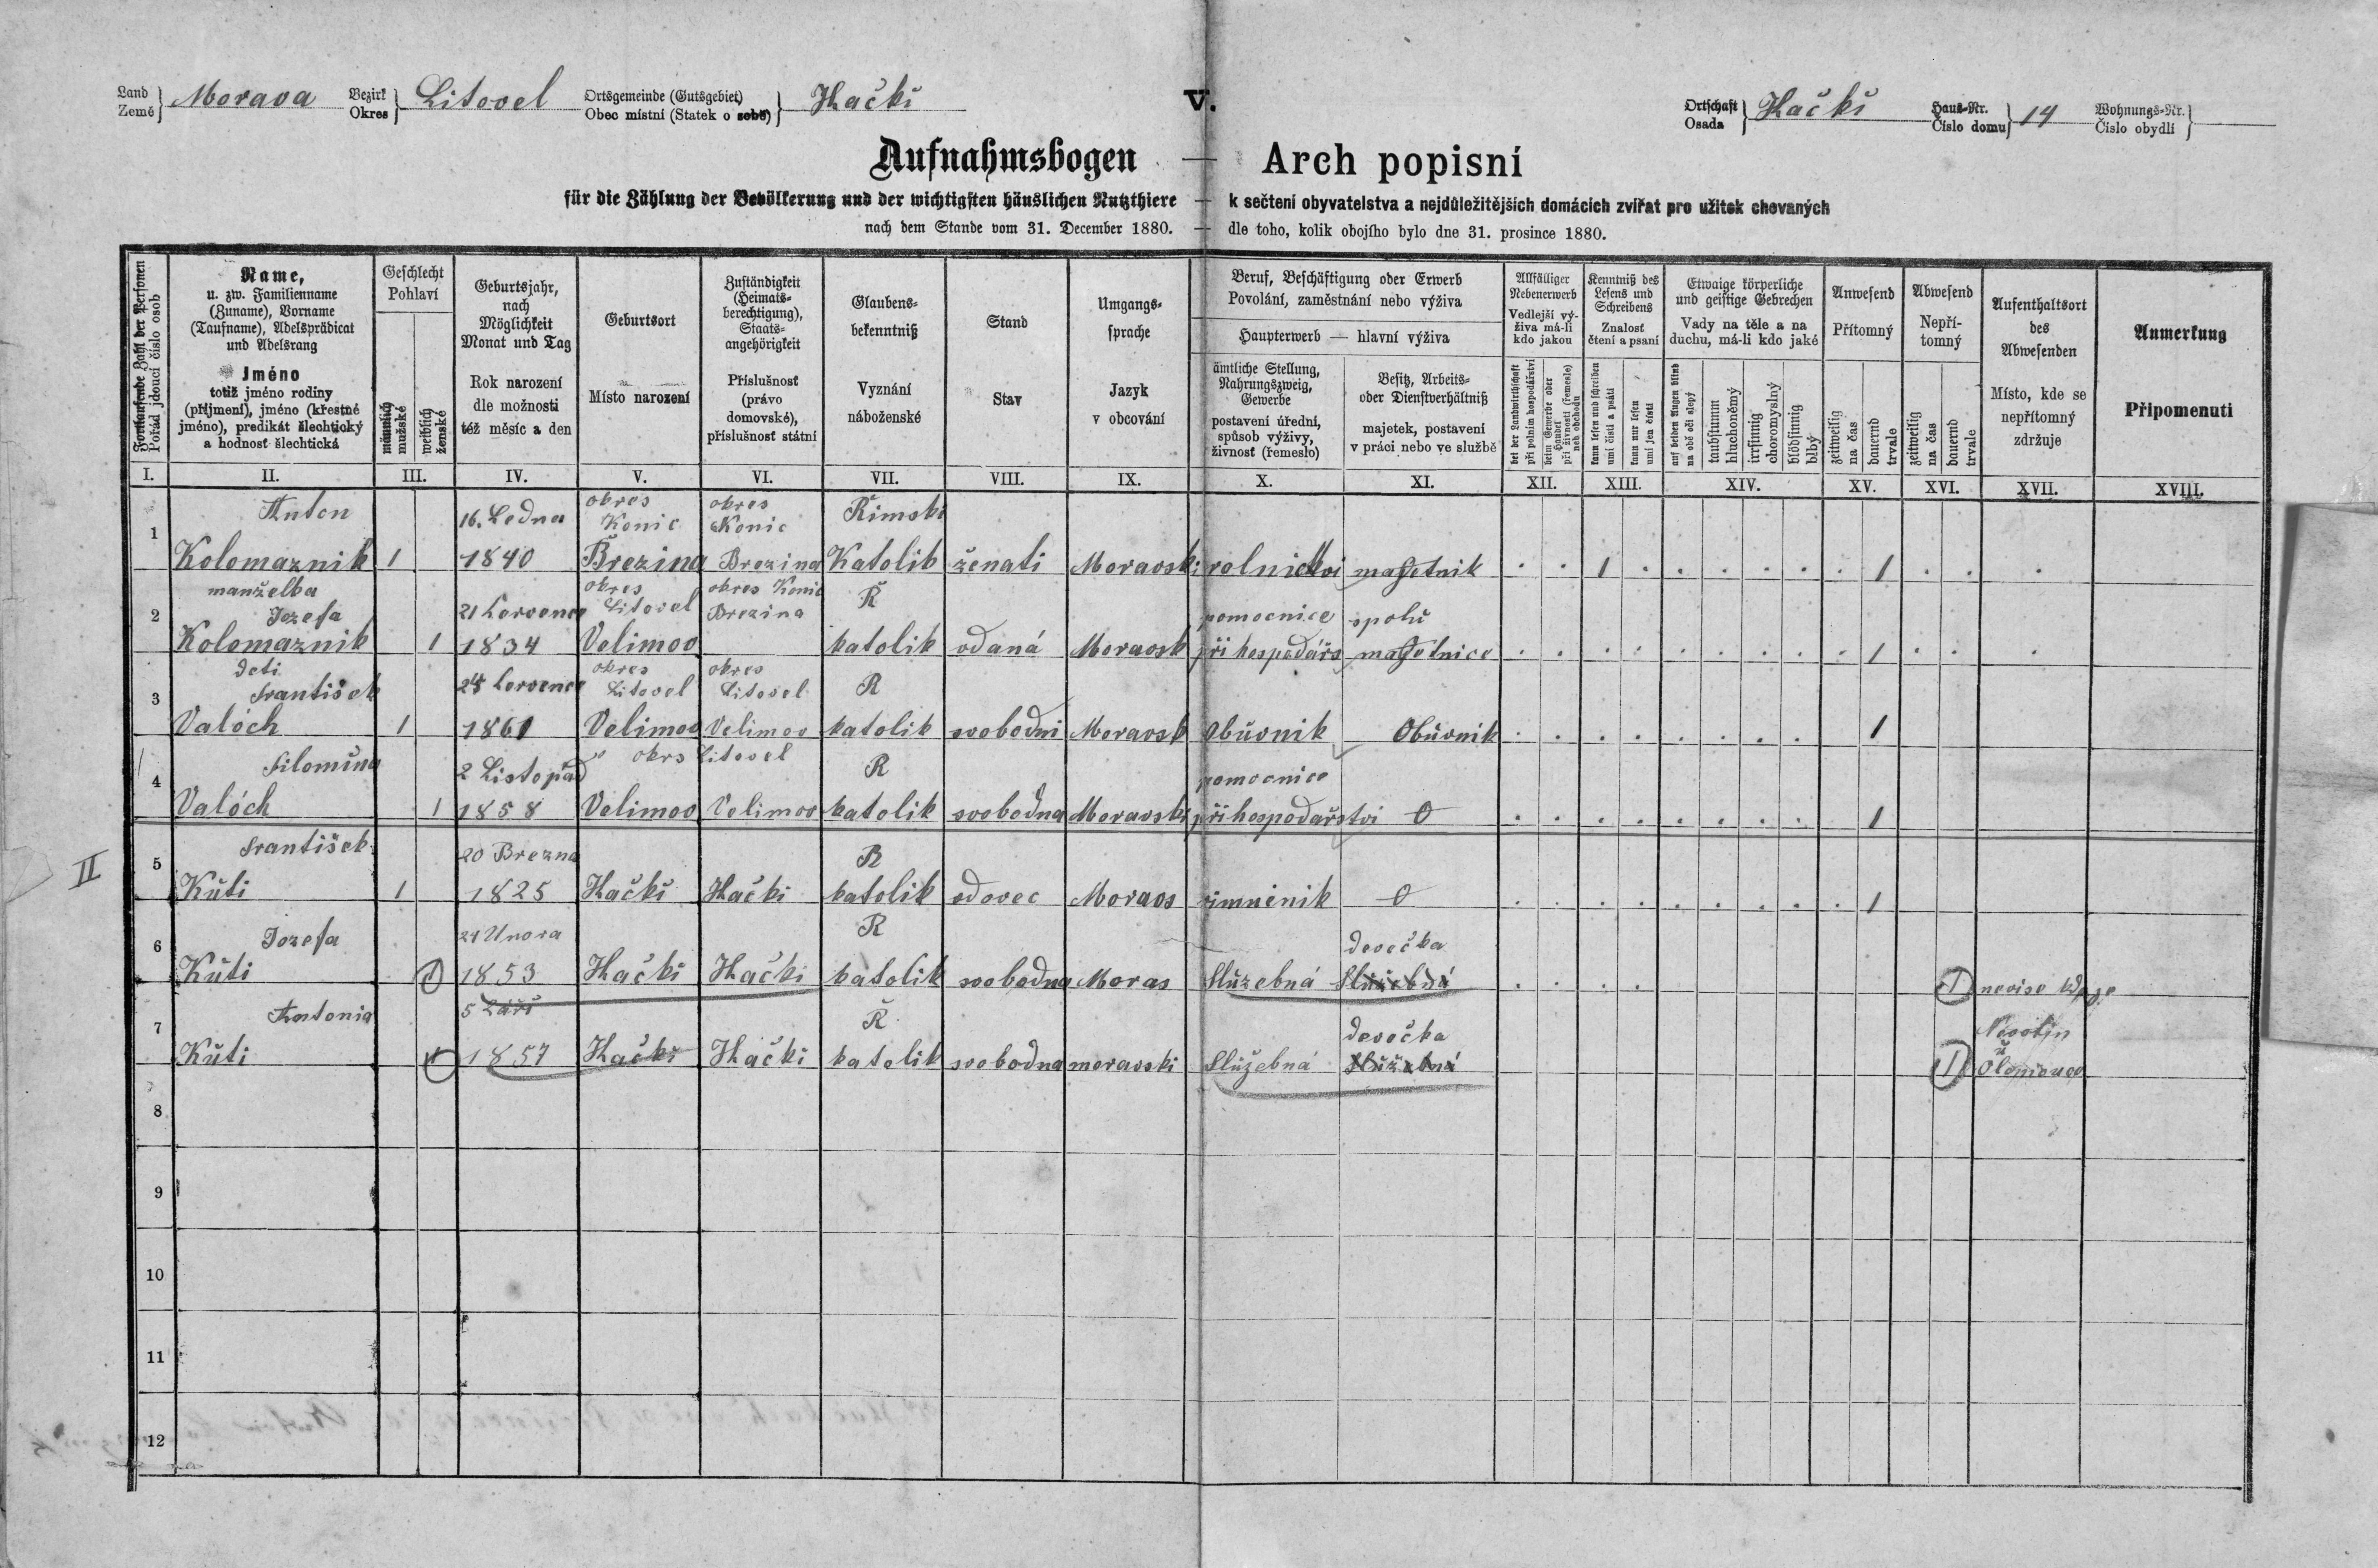 Land Země } Morava Bezirk Okres } Litovel Ortsgemeinde (Gutsgebiet) Obec místní (Statek o sobě) } Hačkí V. Ortschaft Osada } Hačkí Haus-Nr. Číslo domu } 14 Wohnungs-Nr. Číslo obydlí }
Aufnahmsbogen — Arch popisní
für die Zählung der Bevölkerung und der wichtigsten häuslichen Nutzthiere — k sečtení obyvatelstva a nejdůležitějších domácích zvířat pro užitek chovaných
nach dem Stande vom 31. December 1880. — dle toho, kolik obojího bylo dne 31. prosince 1880.
Fortlaufende Zahl der Personen
Pořád jdoucí číslo osob
Name,
u. zw. Familienname
(Zuname), Vorname
(Taufname), Adelsprädicat
und Adelsrang
Jméno
totiž jméno rodiny
(příjmení), jméno (křestné
jméno), predikát šlechtický
a hodnosť šlechtická
Geschlecht
Pohlaví
männlich
mužské
weiblich
ženské
Geburtsjahr,
nach
Möglichkeit
Monat und Tag
Rok narození
dle možnosti
též měsíc a den
Geburtsort
Místo narození
Zuständigkeit
(Heimats-
berechtigung),
Staats-
angehörigkeit
Příslušnosť
(právo
domovské),
příslušnosť státní
Glaubens-
bekenntniß
Vyznání
náboženské
Stand
Stav
Umgangs-
sprache
Jazyk
v obcování
Beruf, Beschäftigung oder Erwerb
Povolání, zaměstnání nebo výživa
Haupterwerb — hlavní výživa
ämtliche Stellung,
Nahrungszweig,
Gewerbe
postavení úřední,
spůsob výživy,
živnosť (řemeslo)
Besitz, Arbeits-
oder Dienstverhältniß
majetek, postavení
v práci nebo ve službě
Allfälliger
Nebenerwerb
Vedlejší vý-
živa má-li
kdo jakou
bei der Landwirthschaft
při polním hospodářství
beim Gewerbe oder
Handel
při živnosti (řemesle)
neb obchodu
Kenntniß des
Lesens und
Schreibens
Znalosť
čtení a psaní
kann lesen und schreiben
umí čísti a psáti
kann nur lesen
umí jen čísti
Etwaige körperliche
und geistige Gebrechen
Vady na těle a na
duchu, má-li kdo jaké
auf beiden Augen blind
na obě oči slepý
taubstumm
hluchoněmý
irrsinnig
choromyslný
blödsinnig
blbý
Anwesend
Přítomný
zeitweilig
na čas
dauernd
trvale
Abwesend
Nepří-
tomný
zeitweilig
na čas
dauernd
trvale
Aufenthaltsort
des
Abwesenden
Místo, kde se
nepřítomný
zdržuje
Anmerkung
Připomenutí
I. II. III. IV. V. VI. VII. VIII. IX. X. XI. XII. XIII. XIV. XV. XVI. XVII. XVIII.
Anton 16. Ledna okres Konic okres Konic Řimski
1 Kolomaznik 1 1840 Březina Brezina Katolik ženati Moravski majetnik 1 1
manželka okres Litovel okres Konic Ř
Jozefa 21 Července Brezina pomocnice spolu
2 Kolomaznik 1 1834 Velimov katolik vdaná Moravsk při hospodářs majetnice 1
deti okres okres
František Července Litovel Litovel R
3 Valóch 1 1861 Velimov Velimov katolik svobodni Moravsk Obůvnik Obůvnik 1
Filoména 2 Listopad okrs Litovel R pomocnice
4 Valóch 1 1858 Velimov Velimov katolik svobodna Moravski při hospodařstvi 0 1
František 20 Brezna R
II 5 Kůti 1 1825 Hačkí Hački katolik vdovec Moravs 0 1
Jozefa 21 Unora R devečka
6 Kůti 1 1853 Hački Hački katolik svobodna Moras Slůzebná Slůžebná 1 nevise
Antonia 5 Září Ř devečka
7 Kůti 1 1857 Hački Hački katolik svobodna moravski Slůžebná Slůžebná 1 u Olomouce
8
9
10
11
12